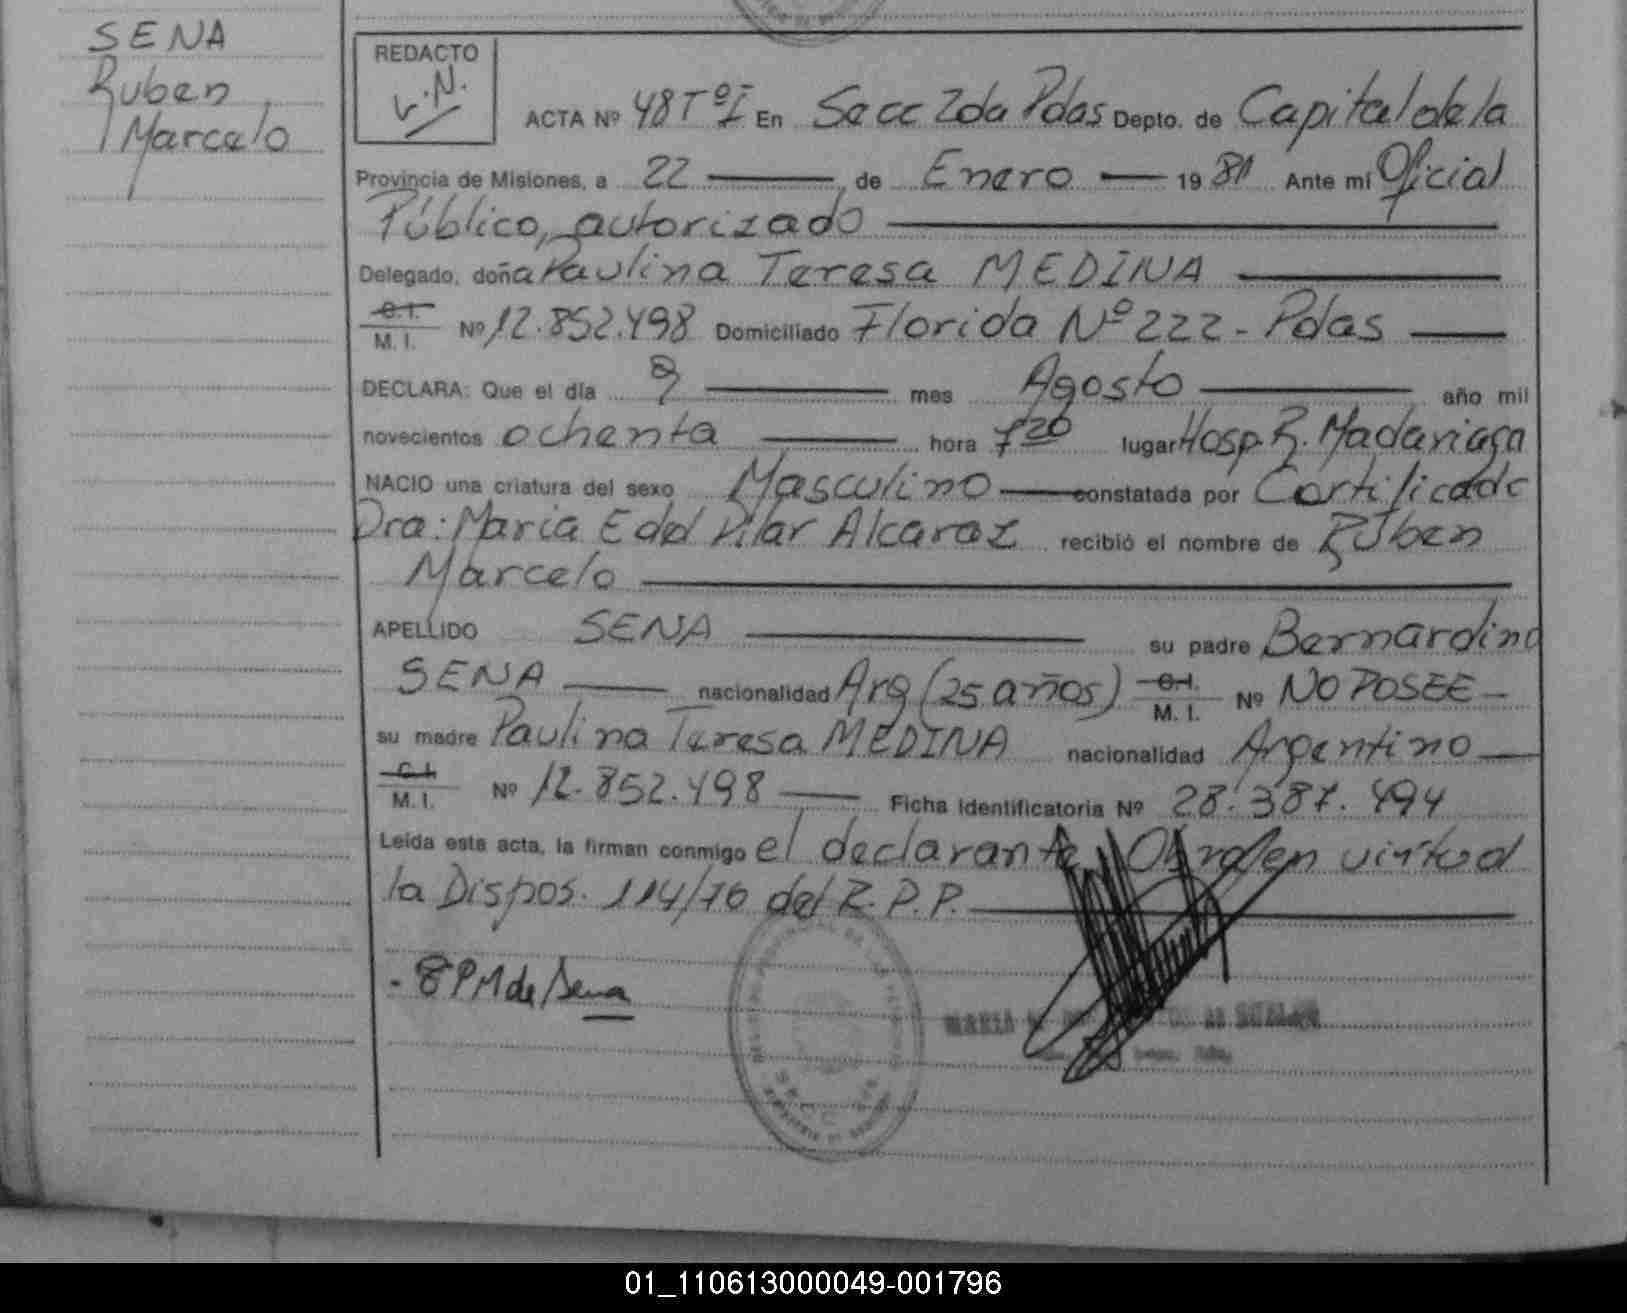 SENA
Ruben
Marcelo
REDACTO
ACTA Nº 48 Tº I En Secc 2da Pdas Depto. de Capital de la
Provincia de Misiones, a 22 de Enero 1981 Ante mi Oficial
Público, autorizado
Delegado, doña Paulina Teresa MEDINA
C.I.
M. I. Nº 12.852.498 Domiciliado Florida Nº 222 - Pdas
DECLARA: Que el día mes Agosto año mil
novecientos ochenta hora 7 20 lugar Hosp. R. Madariaga
NACIO una criatura del sexo Masculino constatada por Certificado
Dra: Maria E del Pilar Alcaraz recibió el nombre de Rúben
Marcelo
APELLIDO SENA su padre Bernardino
SENA nacionalidad Arg (25 años) C.I. M. I. Nº NO POSEE
su madre Paulina Teresa MEDINA nacionalidad Argentino
C.I.
M. I. Nº 12.852.498 Ficha Identificatoria Nº 28.387.494
Leída esta acta, la firman conmigo el declarante, en virtud
la Dispos. 114/76 del R.P.P.
PM de Sena
MARIA
01_110613000049-001796